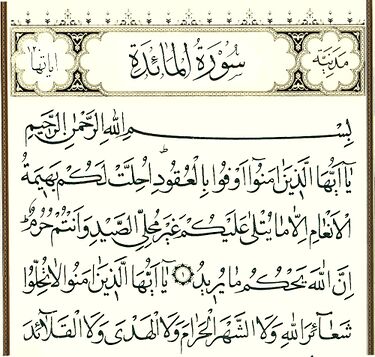 مدنية سُورَةُ الْمَائِدَةِ آياتها ١٢٠
بِسْمِ اللهِ الرَّحْمٰنِ الرَّحِيمِ
يَٓا اَيُّهَا الَّذٖينَ اٰمَنُٓوا اَوْفُوا بِالْعُقُودِ اُحِلَّتْ لَكُمْ بَهٖيمَةُ
الْاَنْعَامِ اِلَّا مَا يُتْلٰى عَلَيْكُمْ غَيْرَ مُحِلِّي الصَّيْدِ وَاَنْتُمْ حُرُمٌ
اِنَّ اللهَ يَحْكُمُ مَا يُرٖيدُ ١ يَٓا اَيُّهَا الَّذٖينَ اٰمَنُوا لَا تُحِلُّوا
شَعَٓائِرَ اللهِ وَلَا الشَّهْرَ الْحَرَامَ وَلَا الْهَدْيَ وَلَا الْقَلَٓائِدَ